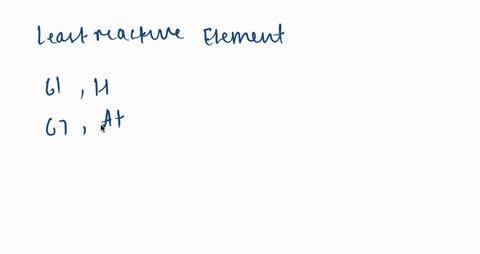 Least reactive Element
G1, H
G7, At